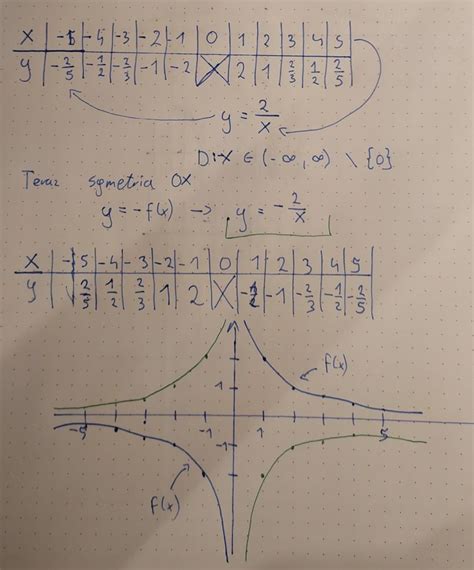 x | -5 | -4 | -3 | -2 | -1 | 0 | 1 | 2 | 3 | 4 | 5
y | -2/5 | -1/2 | -2/3 | -1 | -2 | X | 2 | 1 | 2/3 | 1/2 | 2/5
y = 2/x
D: x ∈ (-∞, ∞) \ {0}
Teraz symetria OX
y = -f(x) → y = -2/x
x | -5 | -4 | -3 | -2 | -1 | 0 | 1 | 2 | 3 | 4 | 5
y | 2/5 | 1/2 | 2/3 | 1 | 2 | X | -2 | -1 | -2/3 | -1/2 | -2/5
f(x)
1
-5 -1 1 5
-1
f(x)